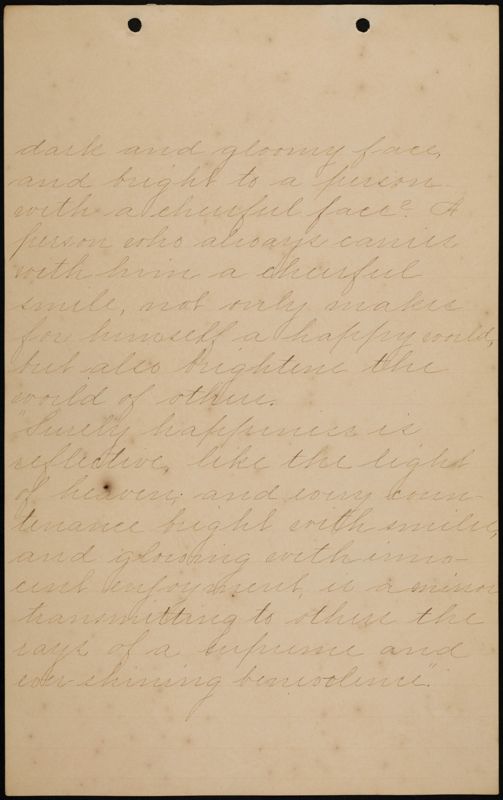 dark and gloomy face,
and bright to a person
with a cheerful face? A
person who always carries
with him a cheerful
smile, not only makes
for himself a happy world,
but also brightens the
world of others.
"Surely happiness is
reflective, like the light
of heaven; and every coun-
tenance bright with smiles,
and glowing with inno-
cent enjoyment, is a mirror
transmitting to others the
rays of a supreme and
ever shining benevolence."